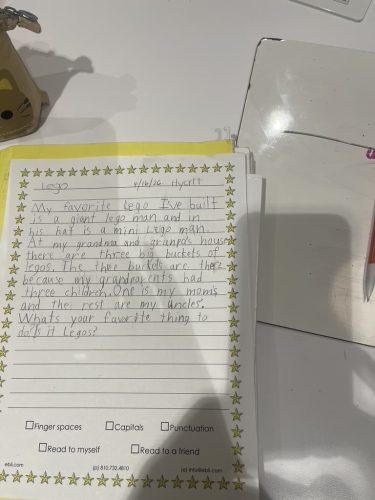 Lego 4/16/26
My favorite lego I've built
is a giant lego man and in
his hat is a mini Lego man.
At my grandma and granpa's house
there are three big buckets of
legos. The three buckets are there
because my grandparents had
three children. One is my mom's
and the rest are my uncles'.
Whats your favorite thing to
do? Is it Legos?
Finger spaces Capitals Punctuation
Read to myself Read to a friend
ebli.com (p) 810.732.4810 (e) info@ebli.com